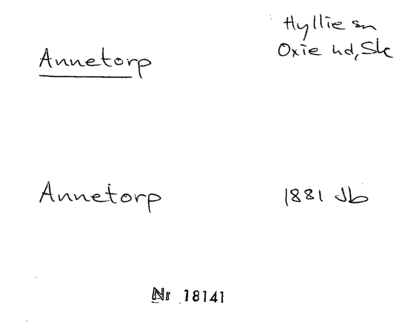 Hyllie sn
Annetorp
Oxie hd, Sk
Annetorp
1881 Jb
Nr 18141